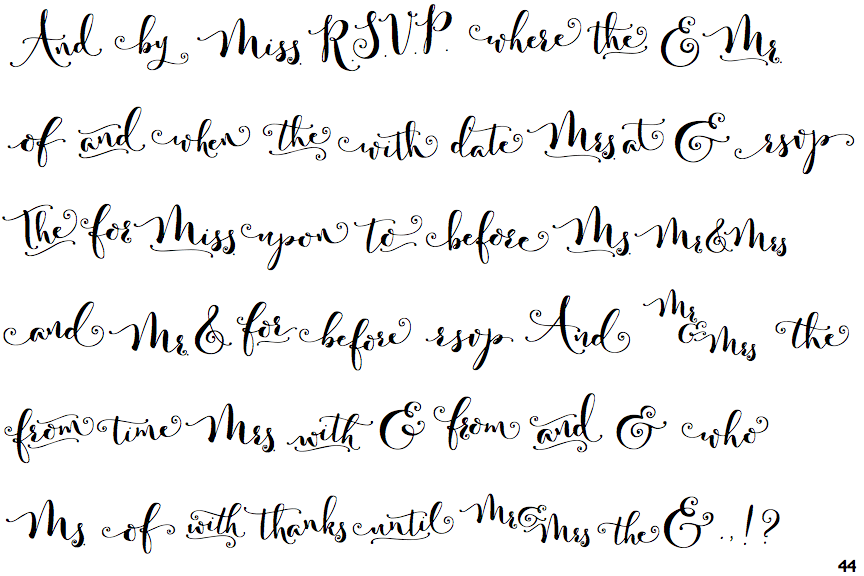 And by Miss. R.S.V.P. where the & Mr.
of and when the with date Mrs. at & rsvp
The for Miss. upon to before Ms. Mr&Mrs
and Mr. & for before rsvp And Mr & Mrs the
from time Mrs. with & from and & who
Ms. of with thanks until Mr&Mrs the & . , ! ?
44